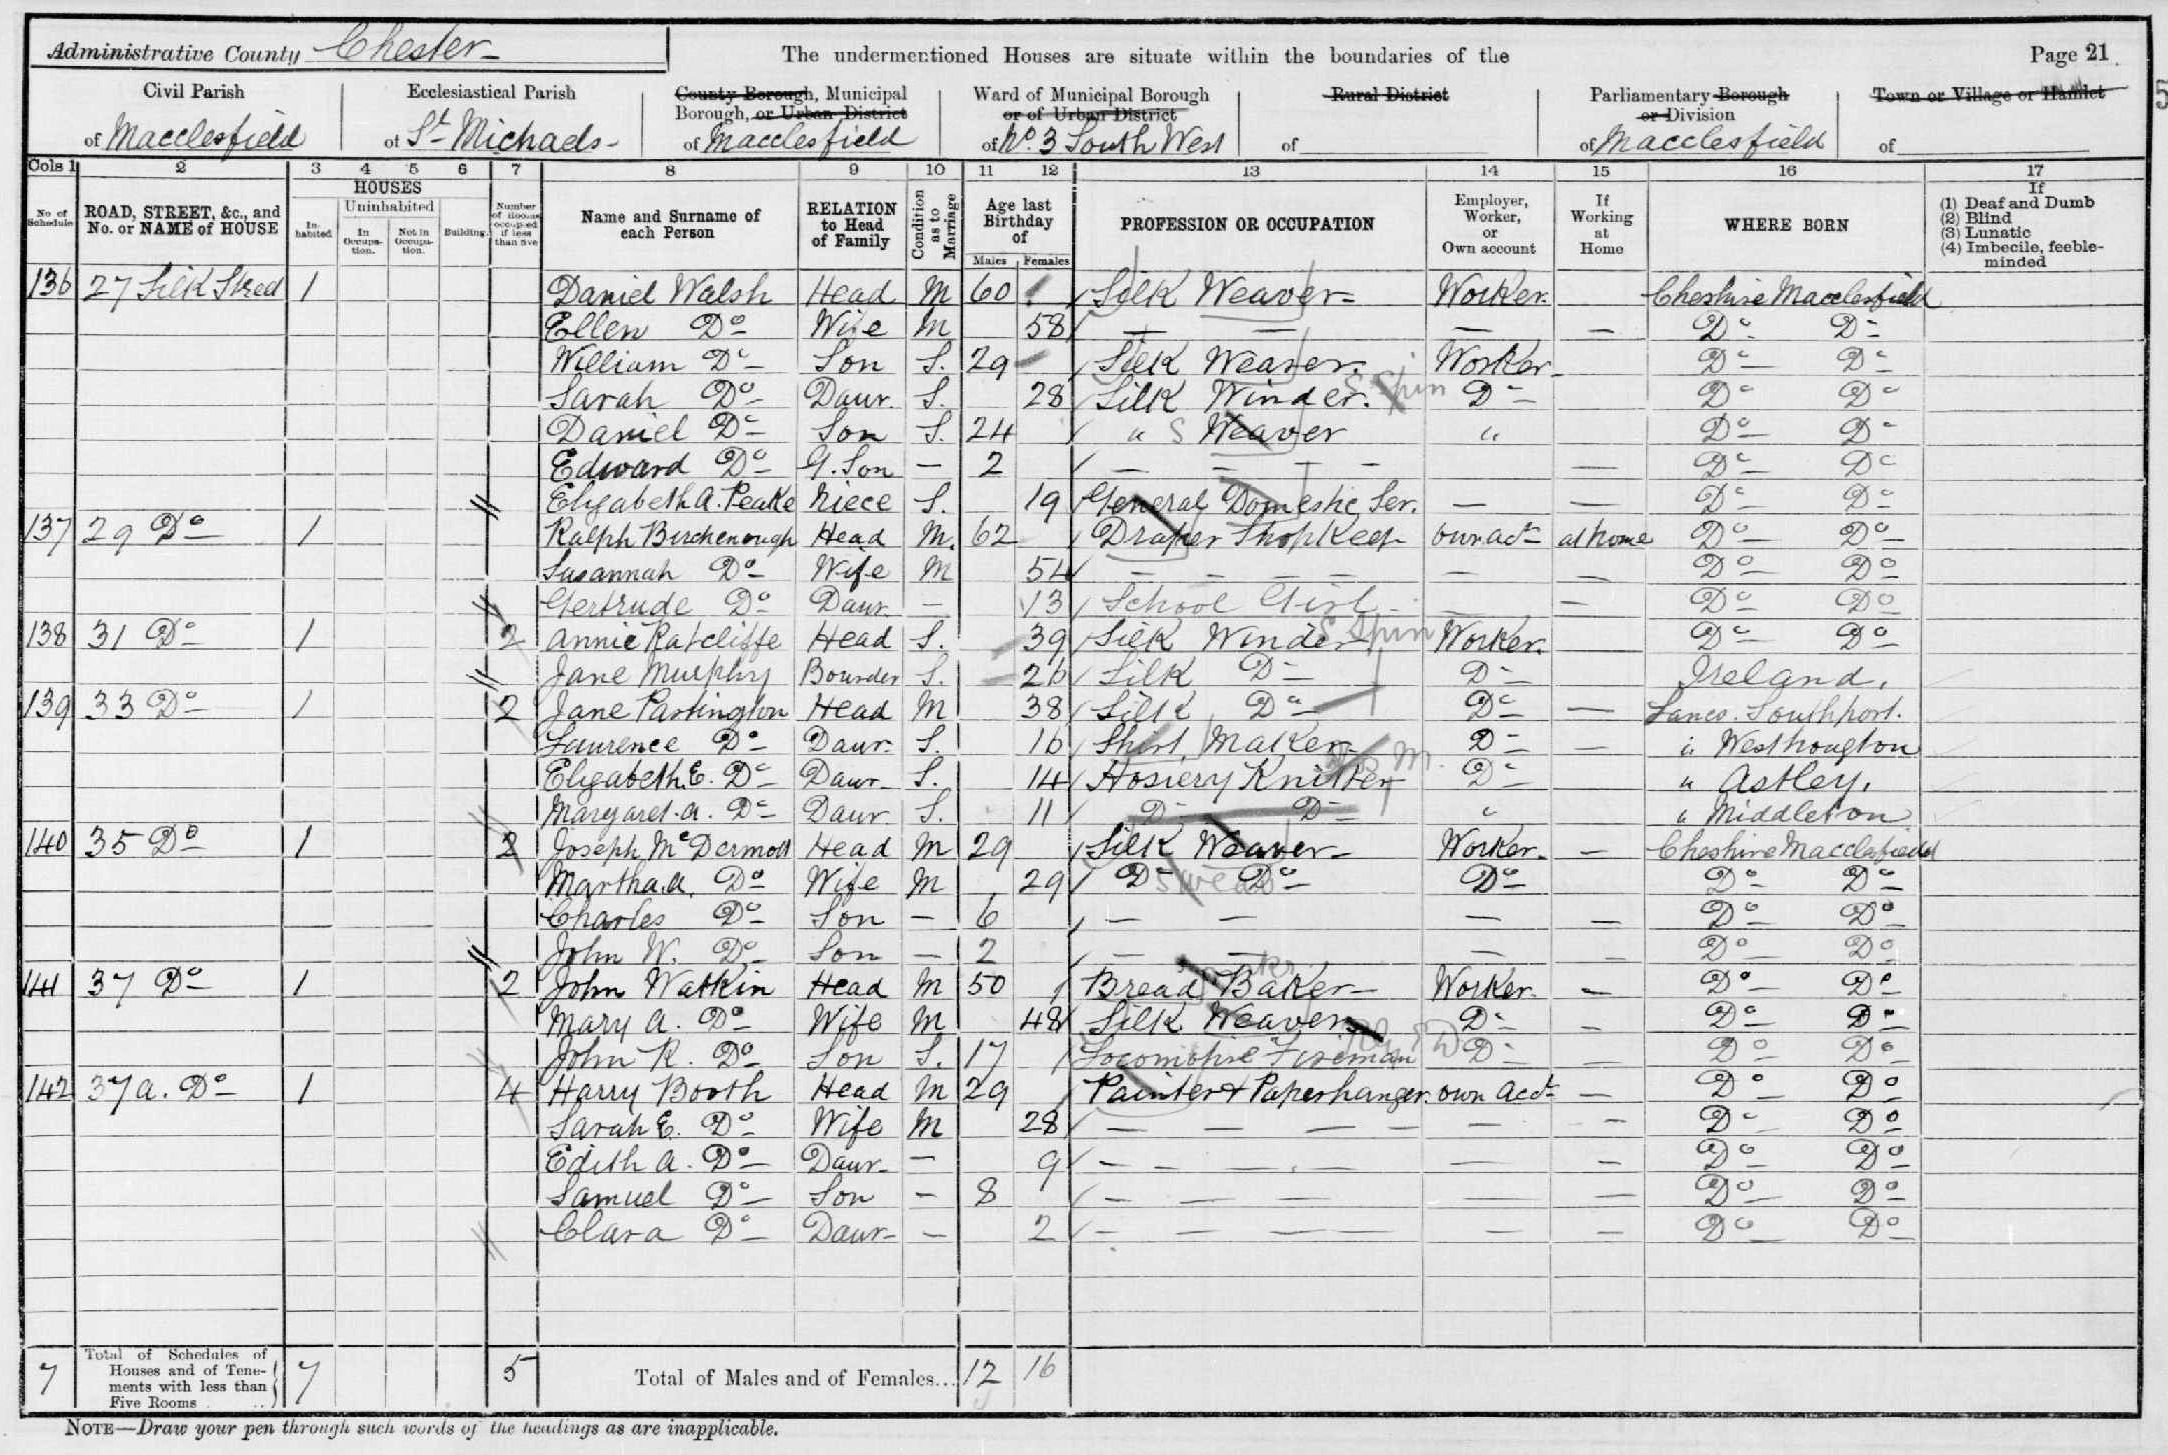 Administrative County Chester The undermentioned Houses are situate within the boundaries of the Page 21
Civil Parish Ecclesiastical Parish County Borough, Municipal Borough, or Urban District Ward of Municipal Borough or of Urban District Rural District Parliamentary Borough or Division Town or Village or Hamlet
of Macclesfield of St Michaels of Macclesfield of No. 3 South West of of Macclesfield of
Cols 1 2 3 4 5 6 7 8 9 10 11 12 13 14 15 16 17
No of Schedule ROAD, STREET, &c., and No. or NAME of HOUSE HOUSES Inhabited Uninhabited In Occupation. Not in Occupation. Building. Number of Rooms occupied if less than five Name and Surname of each Person RELATION to Head of Family Condition as to Marriage Age last Birthday of Males Females PROFESSION OR OCCUPATION Employer, Worker, or Own account If Working at Home WHERE BORN If (1) Deaf and Dumb (2) Blind (3) Lunatic (4) Imbecile, feeble-minded
136 27 Silk Street 1 Daniel Walsh Head M 60 Silk Weaver Worker. Cheshire Macclesfield
Ellen Do Wife M 58 — — — — Do Do
William Do Son S. 29 Silk Weaver. Worker Do Do
Sarah Do Daur. S. 28 Silk Winder. S Spin Do Do Do
Daniel Do Son S. 24 " S Weaver " Do Do
Edward Do G. Son — 2 — — — — — Do Do
Elizabeth A. Peake Niece S. 19 General Domestic Ser. — — Do Do
137 29 Do 1 Ralph Birchenough Head M. 62 Draper Shopkeep own act at home Do Do
Susannah Do Wife M 54 — — — — — — Do Do
Gertrude Do Daur — 13 School Girl — — Do Do
138 31 Do 1 2 Annie Ratcliffe Head S. 39 Silk Winder S Spin Worker. Do Do
Jane Murphy Bourder S. 26 Silk Do Do Ireland.
139 33 Do 1 2 Jane Partington Head M 38 Silk Do Do — Lancs. Southport.
Laurence Do Daur. S. 16 Shirt Maker Do — " Westhougton
Elizabeth E. Do Daur S. 14 Hosiery Knitter Do " Astley.
Margaret. A. Do Daur S. 11 Do Do " " Middleton
140 35 Do 1 2 Joseph McDermott Head M 29 Silk Weaver Worker. — Cheshire Macclesfield
Martha. A. Do Wife M 29 Do Do Do Do Do
Charles Do Son — 6 — — — — Do Do
John W. Do Son — 2 — — — — Do Do
141 37 Do 1 2 John Watkin Head M 50 Bread Baker Worker. — Do Do
Mary A. Do Wife M 48 Silk Weaver Do — Do Do
John R. Do Son S. 17 Locomotive Fireman Do — Do Do
142 37a. Do 1 4 Harry Booth Head M 29 Painter & Paperhanger own Acct — Do Do
Sarah E. Do Wife M 28 — — — — — — Do Do
Edith A. Do Daur — 9 — — — — — — Do Do
Samuel Do Son — 8 — — — — — — Do Do
Clara Do Daur — 2 — — — — — — Do Do
7 Total of Schedules of Houses and of Tenements with less than Five Rooms 7 5 Total of Males and of Females... 12 16
NOTE—Draw your pen through such words of the headings as are inapplicable.